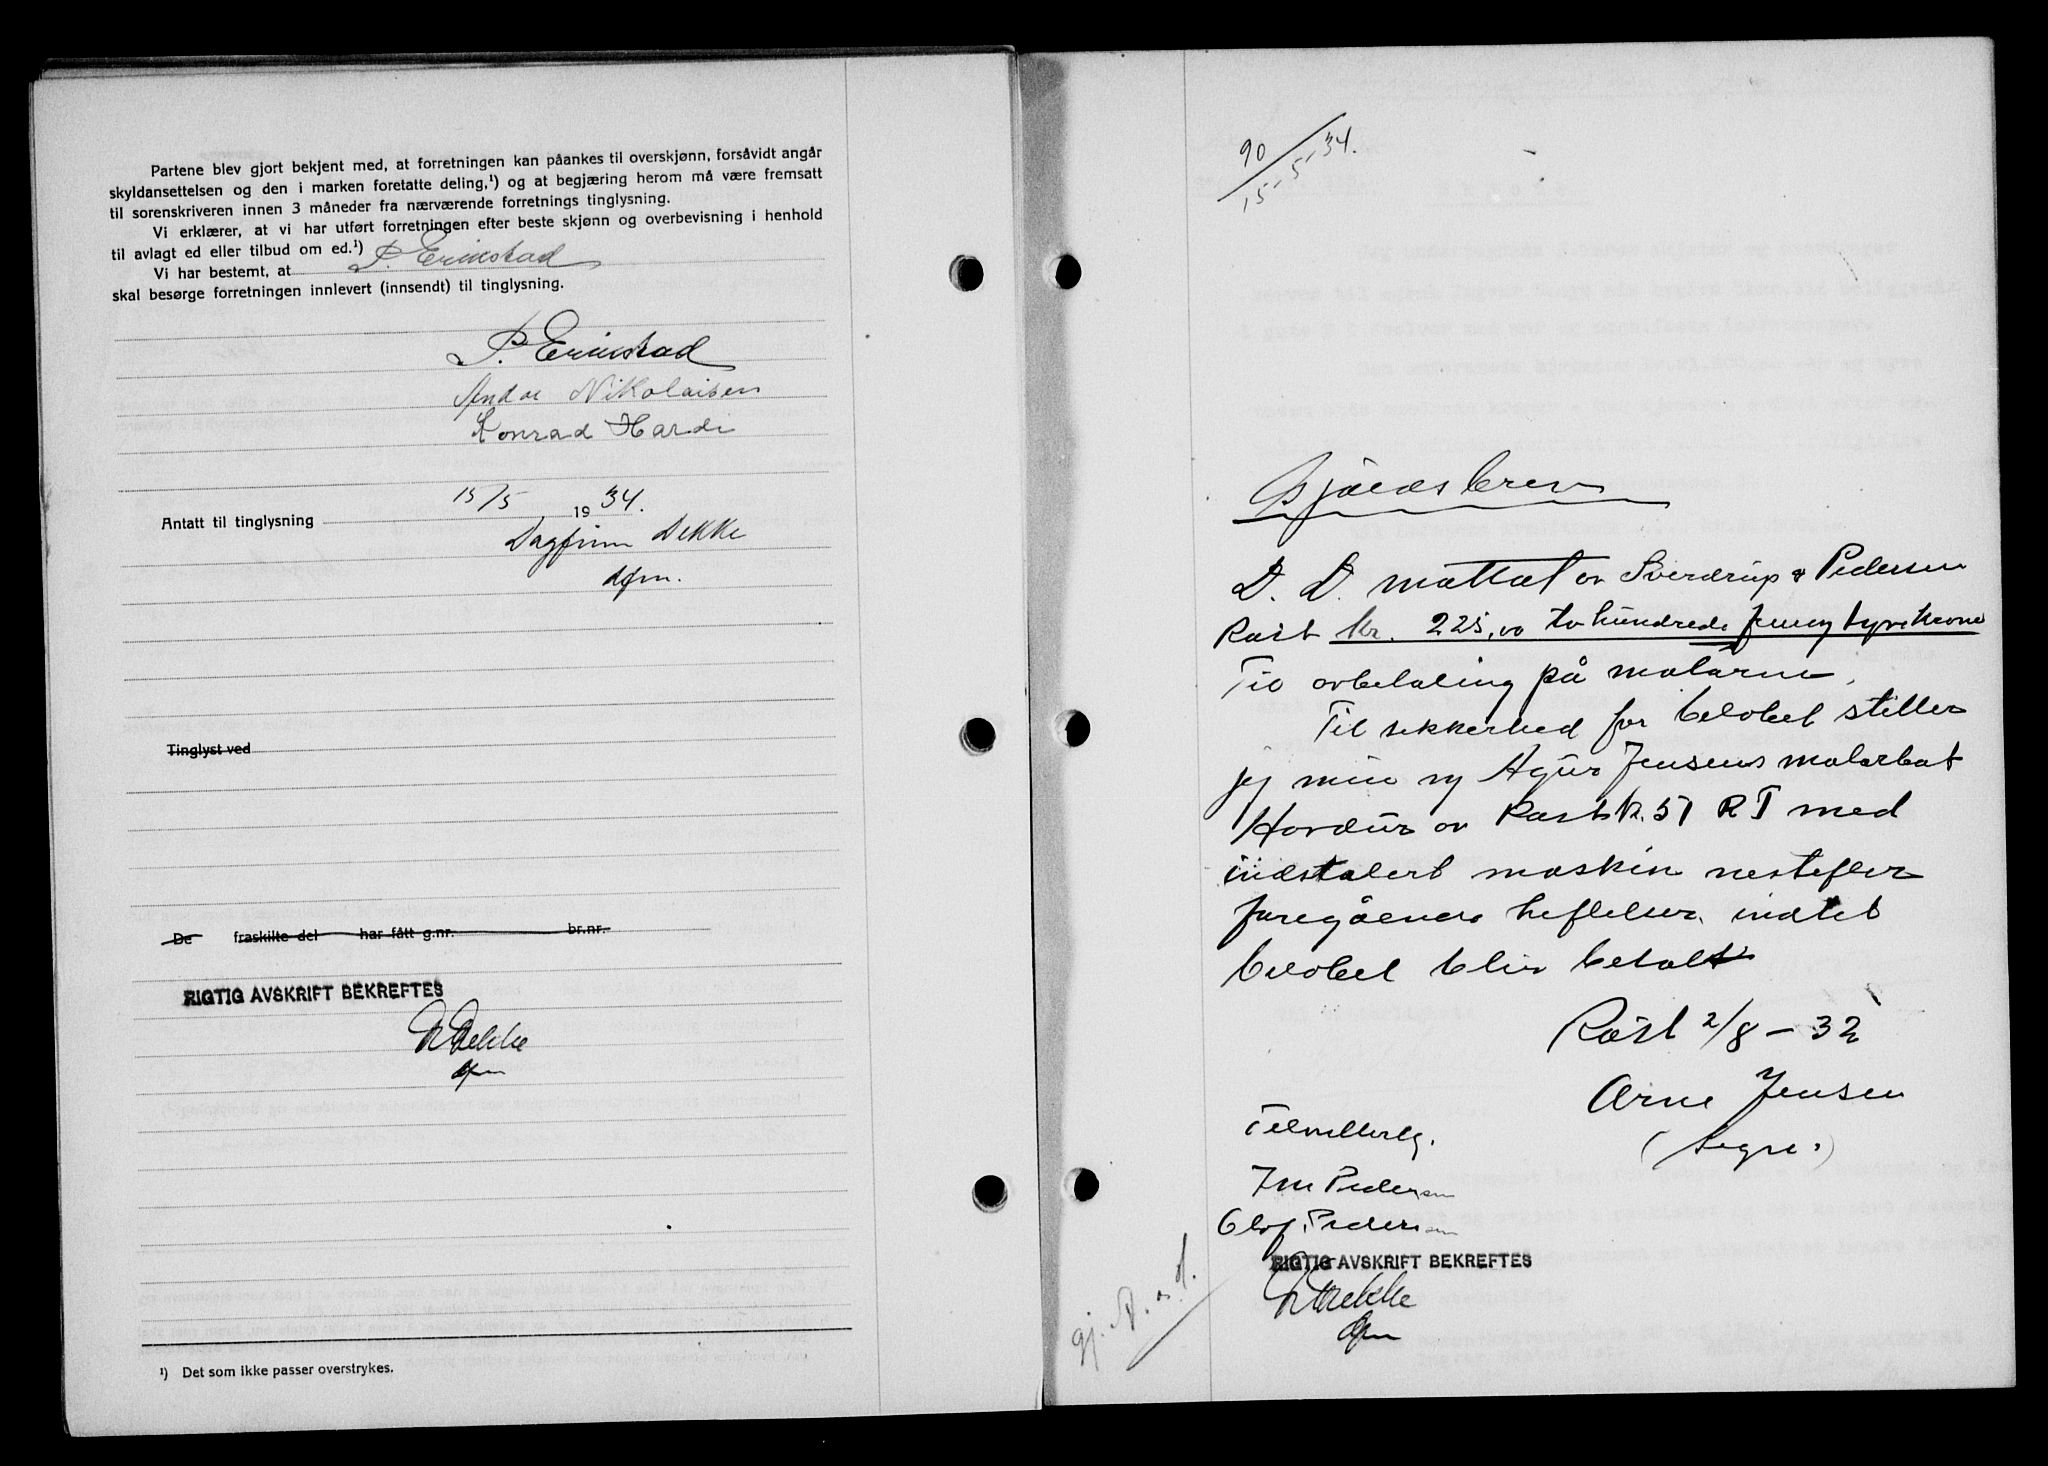 Partene blev gjort bekjent med, at forretningen kan påankes til overskjønn, forsåvidt angår
skyldansettelsen og den i marken foretatte deling,¹) og at begjæring herom må være fremsatt
til sorenskriveren innen 3 måneder fra nærværende forretnings tinglysning.
Vi erklærer, at vi har utført forretningen efter beste skjønn og overbevisning i henhold
til avlagt ed eller tilbud om ed.¹)
Vi har bestemt, at P. Erikstad
skal besørge forretningen innlevert (innsendt) til tinglysning.
P. Erikstad
Andor Nikolaisen
Konrad Hardi
Antatt til tinglysning 15/5 1934.
Dagfinn Dekke
dfm.
Tinglyst ved
De fraskilte del har fått g.nr. br.nr.
RIGTIG AVSKRIFT BEKREFTES
D Dekke
dfm
¹) Det som ikke passer overstrykes.
90
15-5-34.
Gjældsbrev
D. D. mottat av Sverdrup & Pedersen
Røst kr. 225,00 to hundrede femogtyve kroner
Til avbetaling på motoren.
Til sikkerhed for beløbet stiller
jeg min og Agur Jensens motorbåt
Havdur av Røst N. 51 RT med
indstalert maskin nestefter
foregående heftelser, indtil
beløbet blir betalt
Røst 2/8 - 32
Arne Jensen
(Sign.)
Til vitterlighet.
Jon Pedersen
Olof. Pedersen
RIGTIG AVSKRIFT BEKREFTES
D Dekke
dfm
gj. A. s. d.